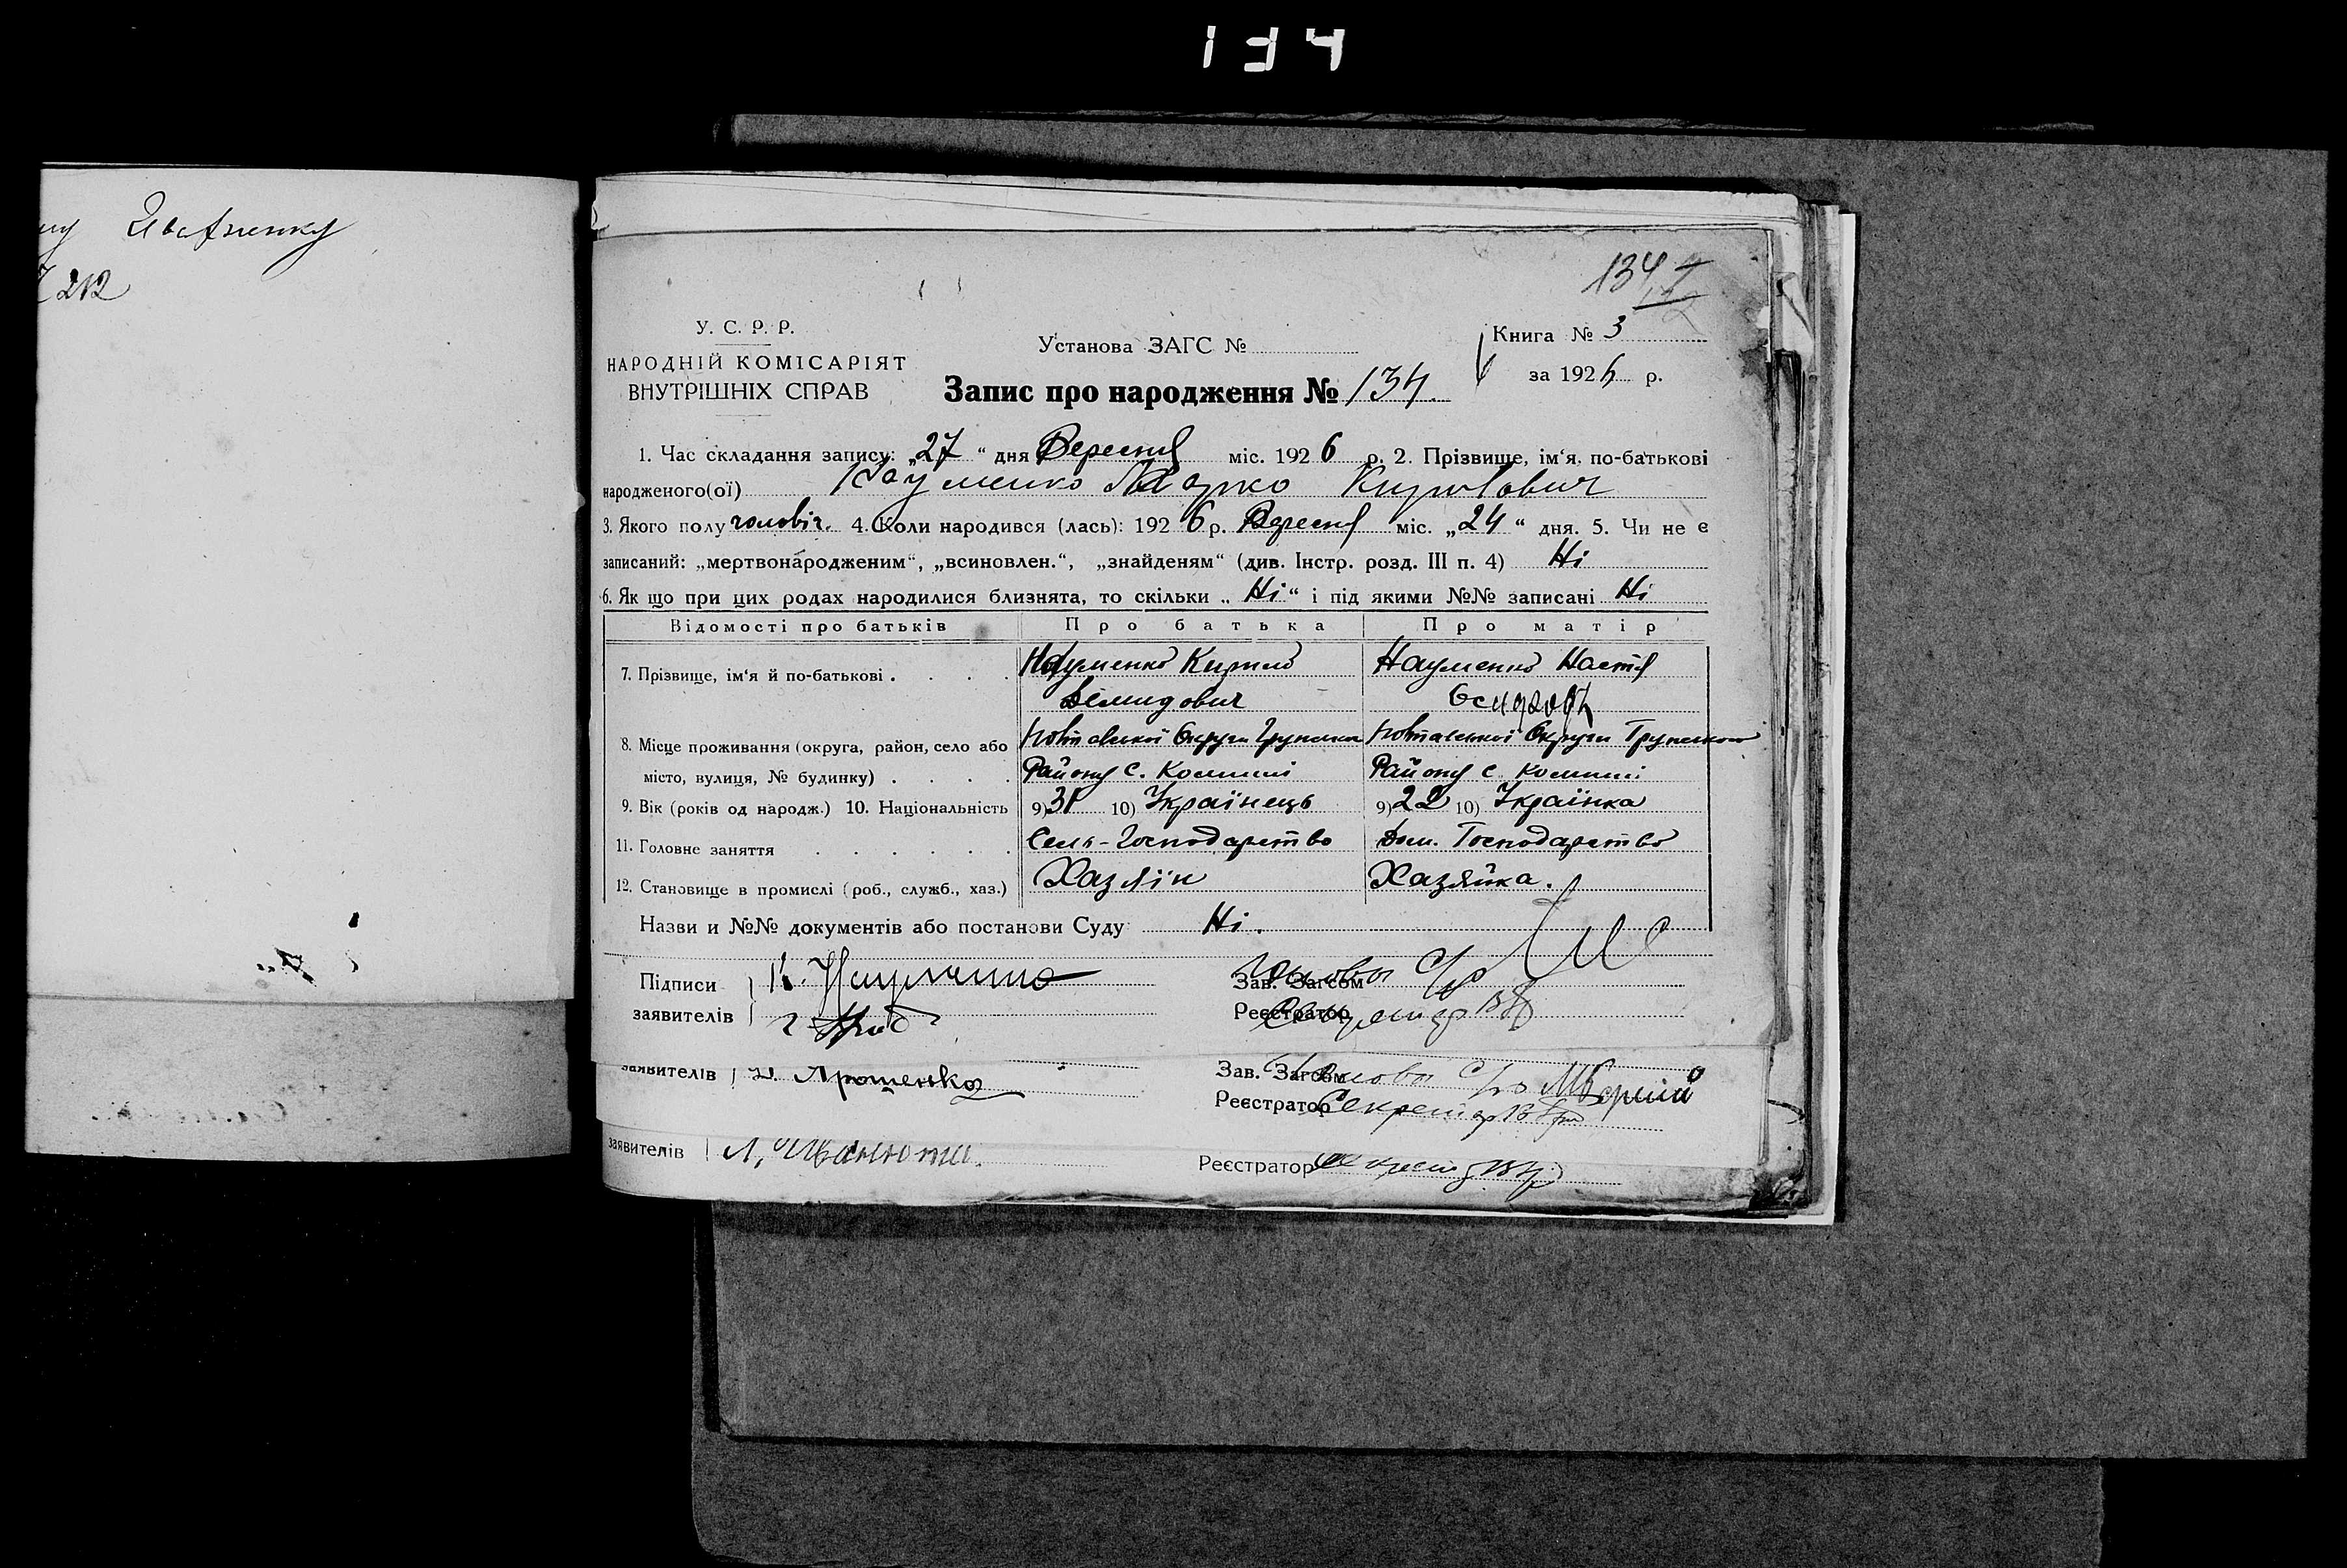 134
212
134
У. С. Р. Р.
НАРОДНІЙ КОМІСАРІЯТ
ВНУТРІШНІХ СПРАВ
Установа ЗАГС №
Книга № 3
за 1926 р.
Запис про народження № 134
1. Час складання запису: „27“ дня Вересня міс. 1926 р. 2. Прізвище, ім‘я, по-батькові
народженого(ої) Науменко Кирилович
3. Якого полу чоловіч. 4. Коли народився (лась): 1926 р. Вересня міс. „24“ дня. 5. Чи не є
записаний: „мертвонародженим“, „всиновлен.“, „знайденям“ (див. Інстр. розд. III п. 4) Ні
6. Як що при цих родах народилися близнята, то скільки „Ні“ і під якими №№ записані Ні
Відомості про батьків Про батька Про матір
7. Прізвище, ім‘я й по-батькові . . . . Науменко Кирило Науменко Настя
Демидович
8. Місце проживання (округа, район, село або Полтавської Округи Полтавської Округи
місто, вулиця, № будинку) . . . . Району с. Комиші Району с. Комиші
9. Вік (років од народж.) 10. Національність 9) 31 10) Українець 9) 22 10) Українка
11. Головне заняття . . . . . . Сель-Господарство Дом. Господарство
12. Становище в промислі (роб., служб., хаз.) Хазяїн Хазяйка.
Назви и №№ документів або постанови Суду Ні.
Підписи К. Науменко Зав. Загсом Голова
заявителів Реєстратор Секретар
заявителів Ярошенко Зав. Загсом Голова
Реєстратор Секретар
заявителів Реєстратор Секретар